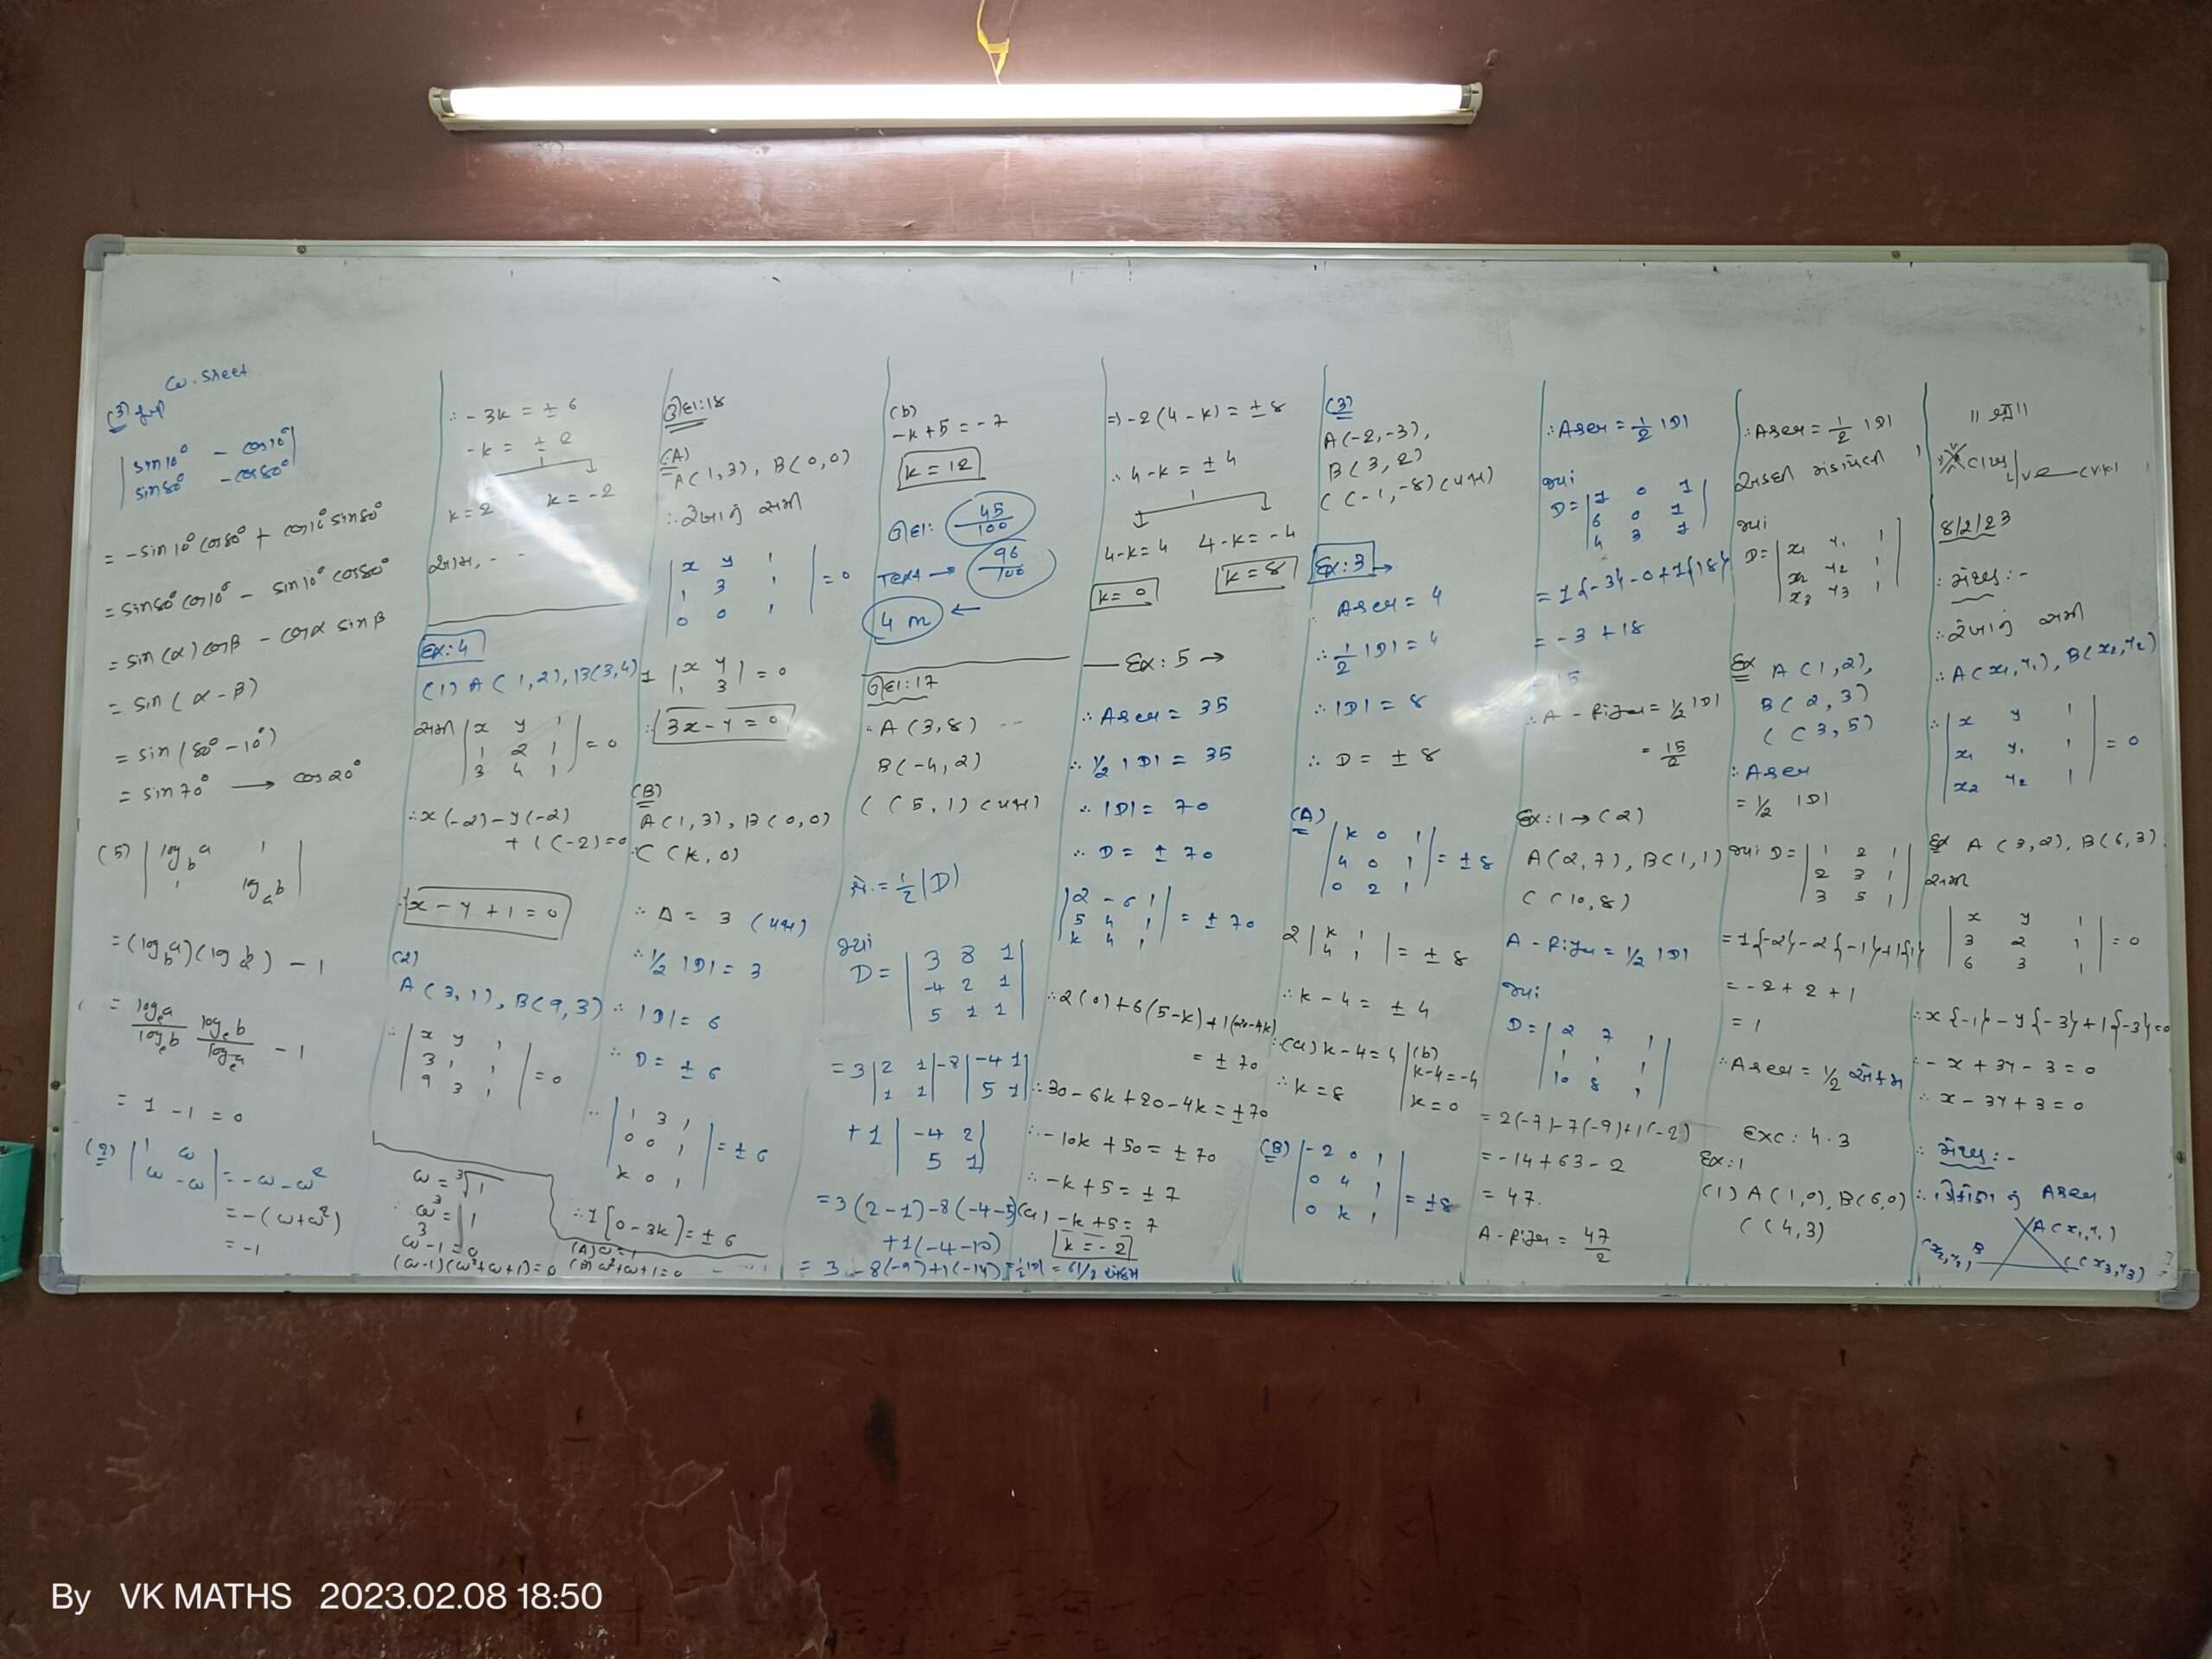 W. sheet
(3) imp
| sin10° - cos10° |
| sin80° - cos80° |
= -sin10° cos80° + cos10° sin80°
= sin80° cos10° - sin10° cos80°
= sin(α) cosβ - cosα sinβ
= sin(α - β)
= sin(80° - 10°)
= sin70° → cos20°
(5) | log_b a 1 |
| 1 log_a b |
= (log_b a)(log_a b) - 1
= log_e a / log_e b · log_e b / log_e a - 1
= 1 - 1 = 0
| 1 ω |
| ω -ω | = -ω - ω²
= -(ω + ω²)
= -1
∴ -3k = ± 6
-k = ± 2
k = 2 k = -2
Ex: 4
(1) A(1,2), B(3,4)
| x y 1 |
| 1 2 1 | = 0
| 3 4 1 |
∴ x(-2) - y(-2)
+ 1(-2) = 0
x - y + 1 = 0
(2)
A(3,1), B(9,3)
∴ | x y 1 |
| 3 1 1 | = 0
| 9 3 1 |
ω = ³√1
ω³ = 1
ω³ - 1 = 0
(ω-1)(ω²+ω+1) = 0
(A) ω = 1
(B) ω²+ω+1 = 0
ઉદા:18
(A)
A(1,3), B(0,0)
∴ રેખાનું સમી
| x y 1 |
| 1 3 1 | = 0
| 0 0 1 |
1 | x y |
| 1 3 | = 0
3x - y = 0
(B)
A(1,3), B(0,0)
C(k,0)
∴ Δ = 3
∴ ½ |D| = 3
∴ |D| = 6
∴ D = ± 6
∴ | 1 3 1 |
| 0 0 1 | = ± 6
| k 0 1 |
∴ 1[0 - 3k] = ± 6
(b)
-k + 5 = -7
k = 12
ઉદા: 45/100
Text → 96/100
4 m ←
ઉદા:17
A(3,8)
B(-4,2)
C(5,1)
= ½ |D|
જ્યાં
D = | 3 8 1 |
| -4 2 1 |
| 5 1 1 |
= 3 | 2 1 | -8 | -4 1 |
| 1 1 | | 5 1 |
+1 | -4 2 |
| 5 1 |
= 3(2-1) - 8(-4-5)
+1(-4-10)
= 3 - 8(-9) + 1(-14) = ½|D| = 61/2
⇒ -2(4-k) = ± 8
∴ 4-k = ± 4
4-k = 4 4-k = -4
k = 0 k = 8
Ex: 5 →
∴ Area = 35
∴ ½ |D| = 35
∴ |D| = 70
∴ D = ± 70
| 2 -6 1 |
| 5 4 1 | = ± 70
| k 4 1 |
∴ 2(0) + 6(5-k) + 1(20-4k)
= ± 70
∴ 30 - 6k + 20 - 4k = ± 70
∴ -10k + 50 = ± 70
∴ -k + 5 = ± 7
(a) -k + 5 = 7
k = -2
(3)
A(-2,-3),
B(3,2)
C(-1,-8)
Ex: 3 →
Area = 4
∴ ½ |D| = 4
∴ |D| = 8
∴ D = ± 8
(A)
| k 0 1 |
| 4 0 1 | = ± 8
| 0 2 1 |
2 | k 1 |
| 4 1 | = ± 8
∴ k - 4 = ± 4
(a) k - 4 = 4 (b) k - 4 = -4
∴ k = 8 k = 0
(B) | -2 0 1 |
| 0 4 1 | = ± 8
| 0 k 1 |
∴ Area = ½ |D|
જ્યાં
D = | 1 0 1 |
| 6 0 1 |
| 4 3 1 |
= 1{-3} - 0 + 1{18}
= -3 + 18
= 15
= ½ |D|
= 15/2
Ex: 1 → (2)
A(2,7), B(1,1)
C(10,8)
= ½ |D|
જ્યાં
D = | 2 7 1 |
| 1 1 1 |
| 10 8 1 |
= 2(-7) - 7(-9) + 1(-2)
= -14 + 63 - 2
= 47.
= 47/2
∴ Area = ½ |D|
જ્યાં
D = | x1 y1 1 |
| x2 y2 1 |
| x3 y3 1 |
Ex A(1,2),
B(2,3)
C(3,5)
∴ Area
= ½ |D|
જ્યાં D = | 1 2 1 |
| 2 3 1 |
| 3 5 1 |
= 1{-2} - 2{-1} + 1{1}
= -2 + 2 + 1
= 1
∴ Area = ½ એકમ
Exc: 4.3
Ex: 1
(1) A(1,0), B(6,0)
C(4,3)
॥ શ્રી ॥
8/2/23
∴ રેખાનું સમી
∴ A(x1,y1), B(x2,y2)
∴ | x y 1 |
| x1 y1 1 | = 0
| x2 y2 1 |
Ex A(3,2), B(6,3)
| x y 1 |
| 3 2 1 | = 0
| 6 3 1 |
∴ x{-1} - y{-3} + 1{-3} = 0
∴ -x + 3y - 3 = 0
∴ x - 3y + 3 = 0
∴ ત્રિકોણનું Area
A(x1,y1)
(x2,y2) B
C(x3,y3)
By VK MATHS 2023.02.08 18:50